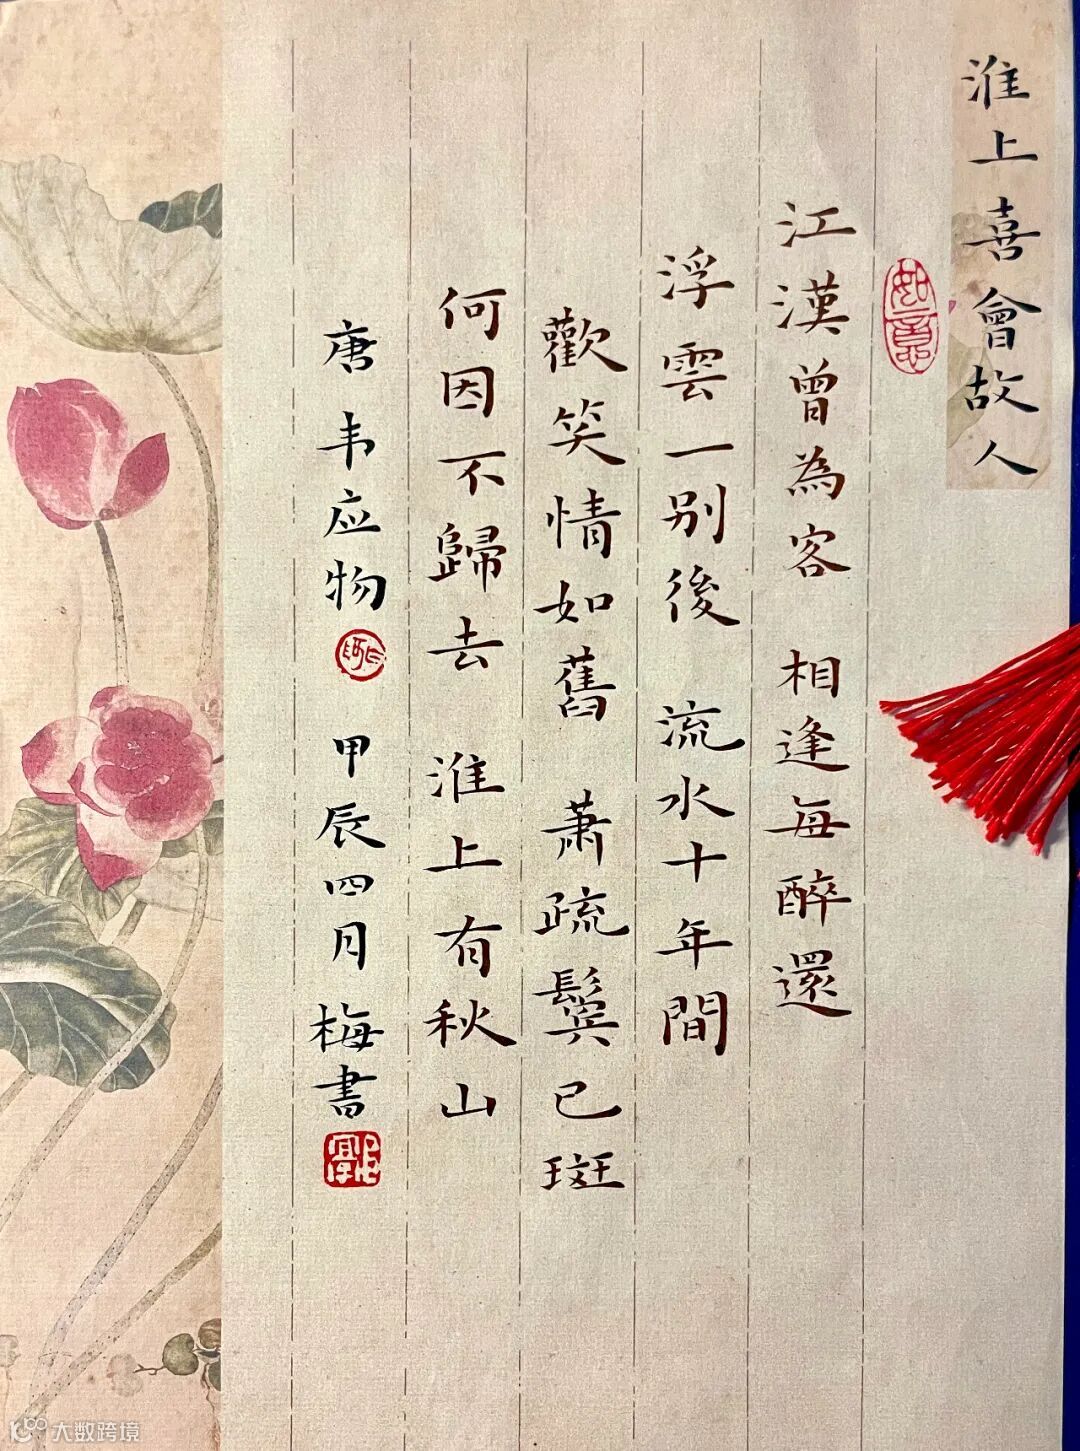 淮上喜會故人
如意
江漢曾為客 相逢每醉還
浮雲一别後 流水十年間
歡笑情如舊 蕭疏鬢已斑
何因不歸去 淮上有秋山
唐 韦应物 甲辰四月梅書
大数跨境